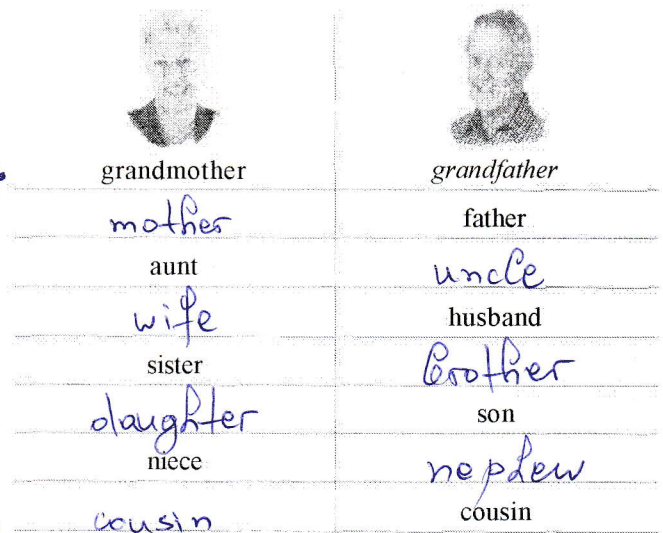 grandmother grandfather
mother father
aunt uncle
wife husband
sister brother
daughter son
niece nephew
cousin cousin